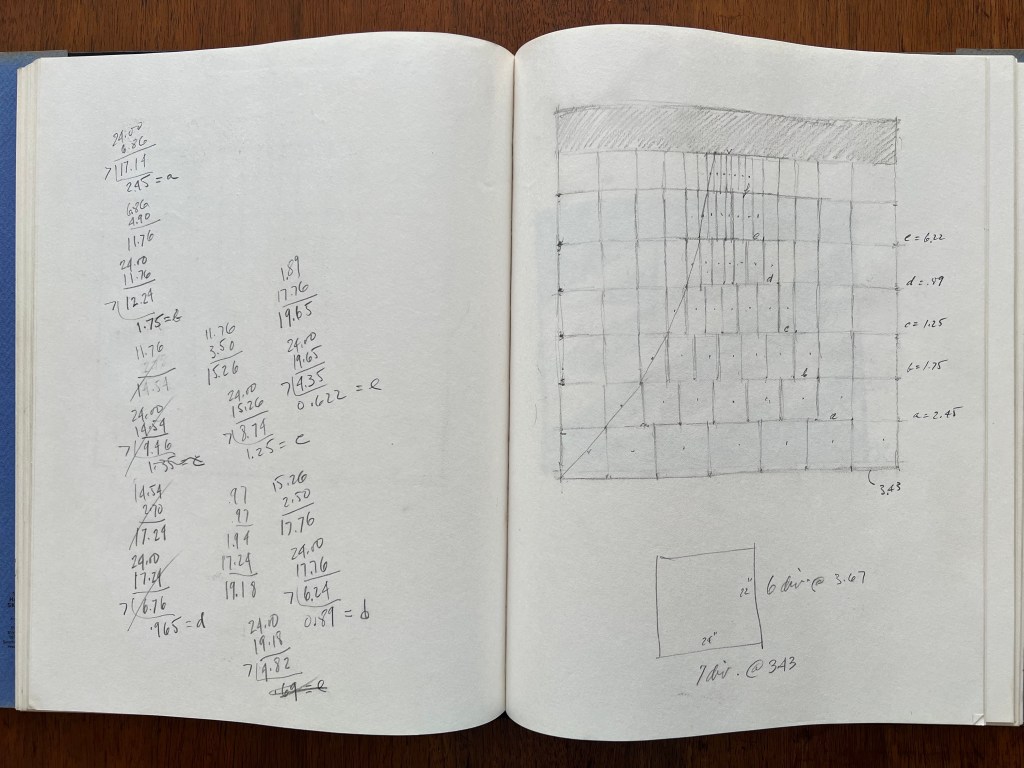 24.00
6.86
7 17.14
2.45 = a
6.86
4.90
11.76
24.00
11.76
7 12.24
1.75 = b
11.76
14.54
24.00
14.54
7 9.46
1.35 = c
14.54
2.70
17.24
24.00
17.24
7 6.76
.965 = d
11.76
3.50
15.26
24.00
15.26
7 8.74
1.25 = c
97
97
1.94
17.24
19.18
24.00
19.18
7 4.82
.69 = e
1.89
17.76
19.65
24.00
19.65
7 4.35
0.622 = e
15.26
2.50
17.76
24.00
17.76
7 6.24
0.89 = d
e
d
c
b
a
e = 6.22
d = .89
c = 1.25
b = 1.75
a = 2.45
3.43
6 div. @ 3.67
24"
7 div. @ 3.43